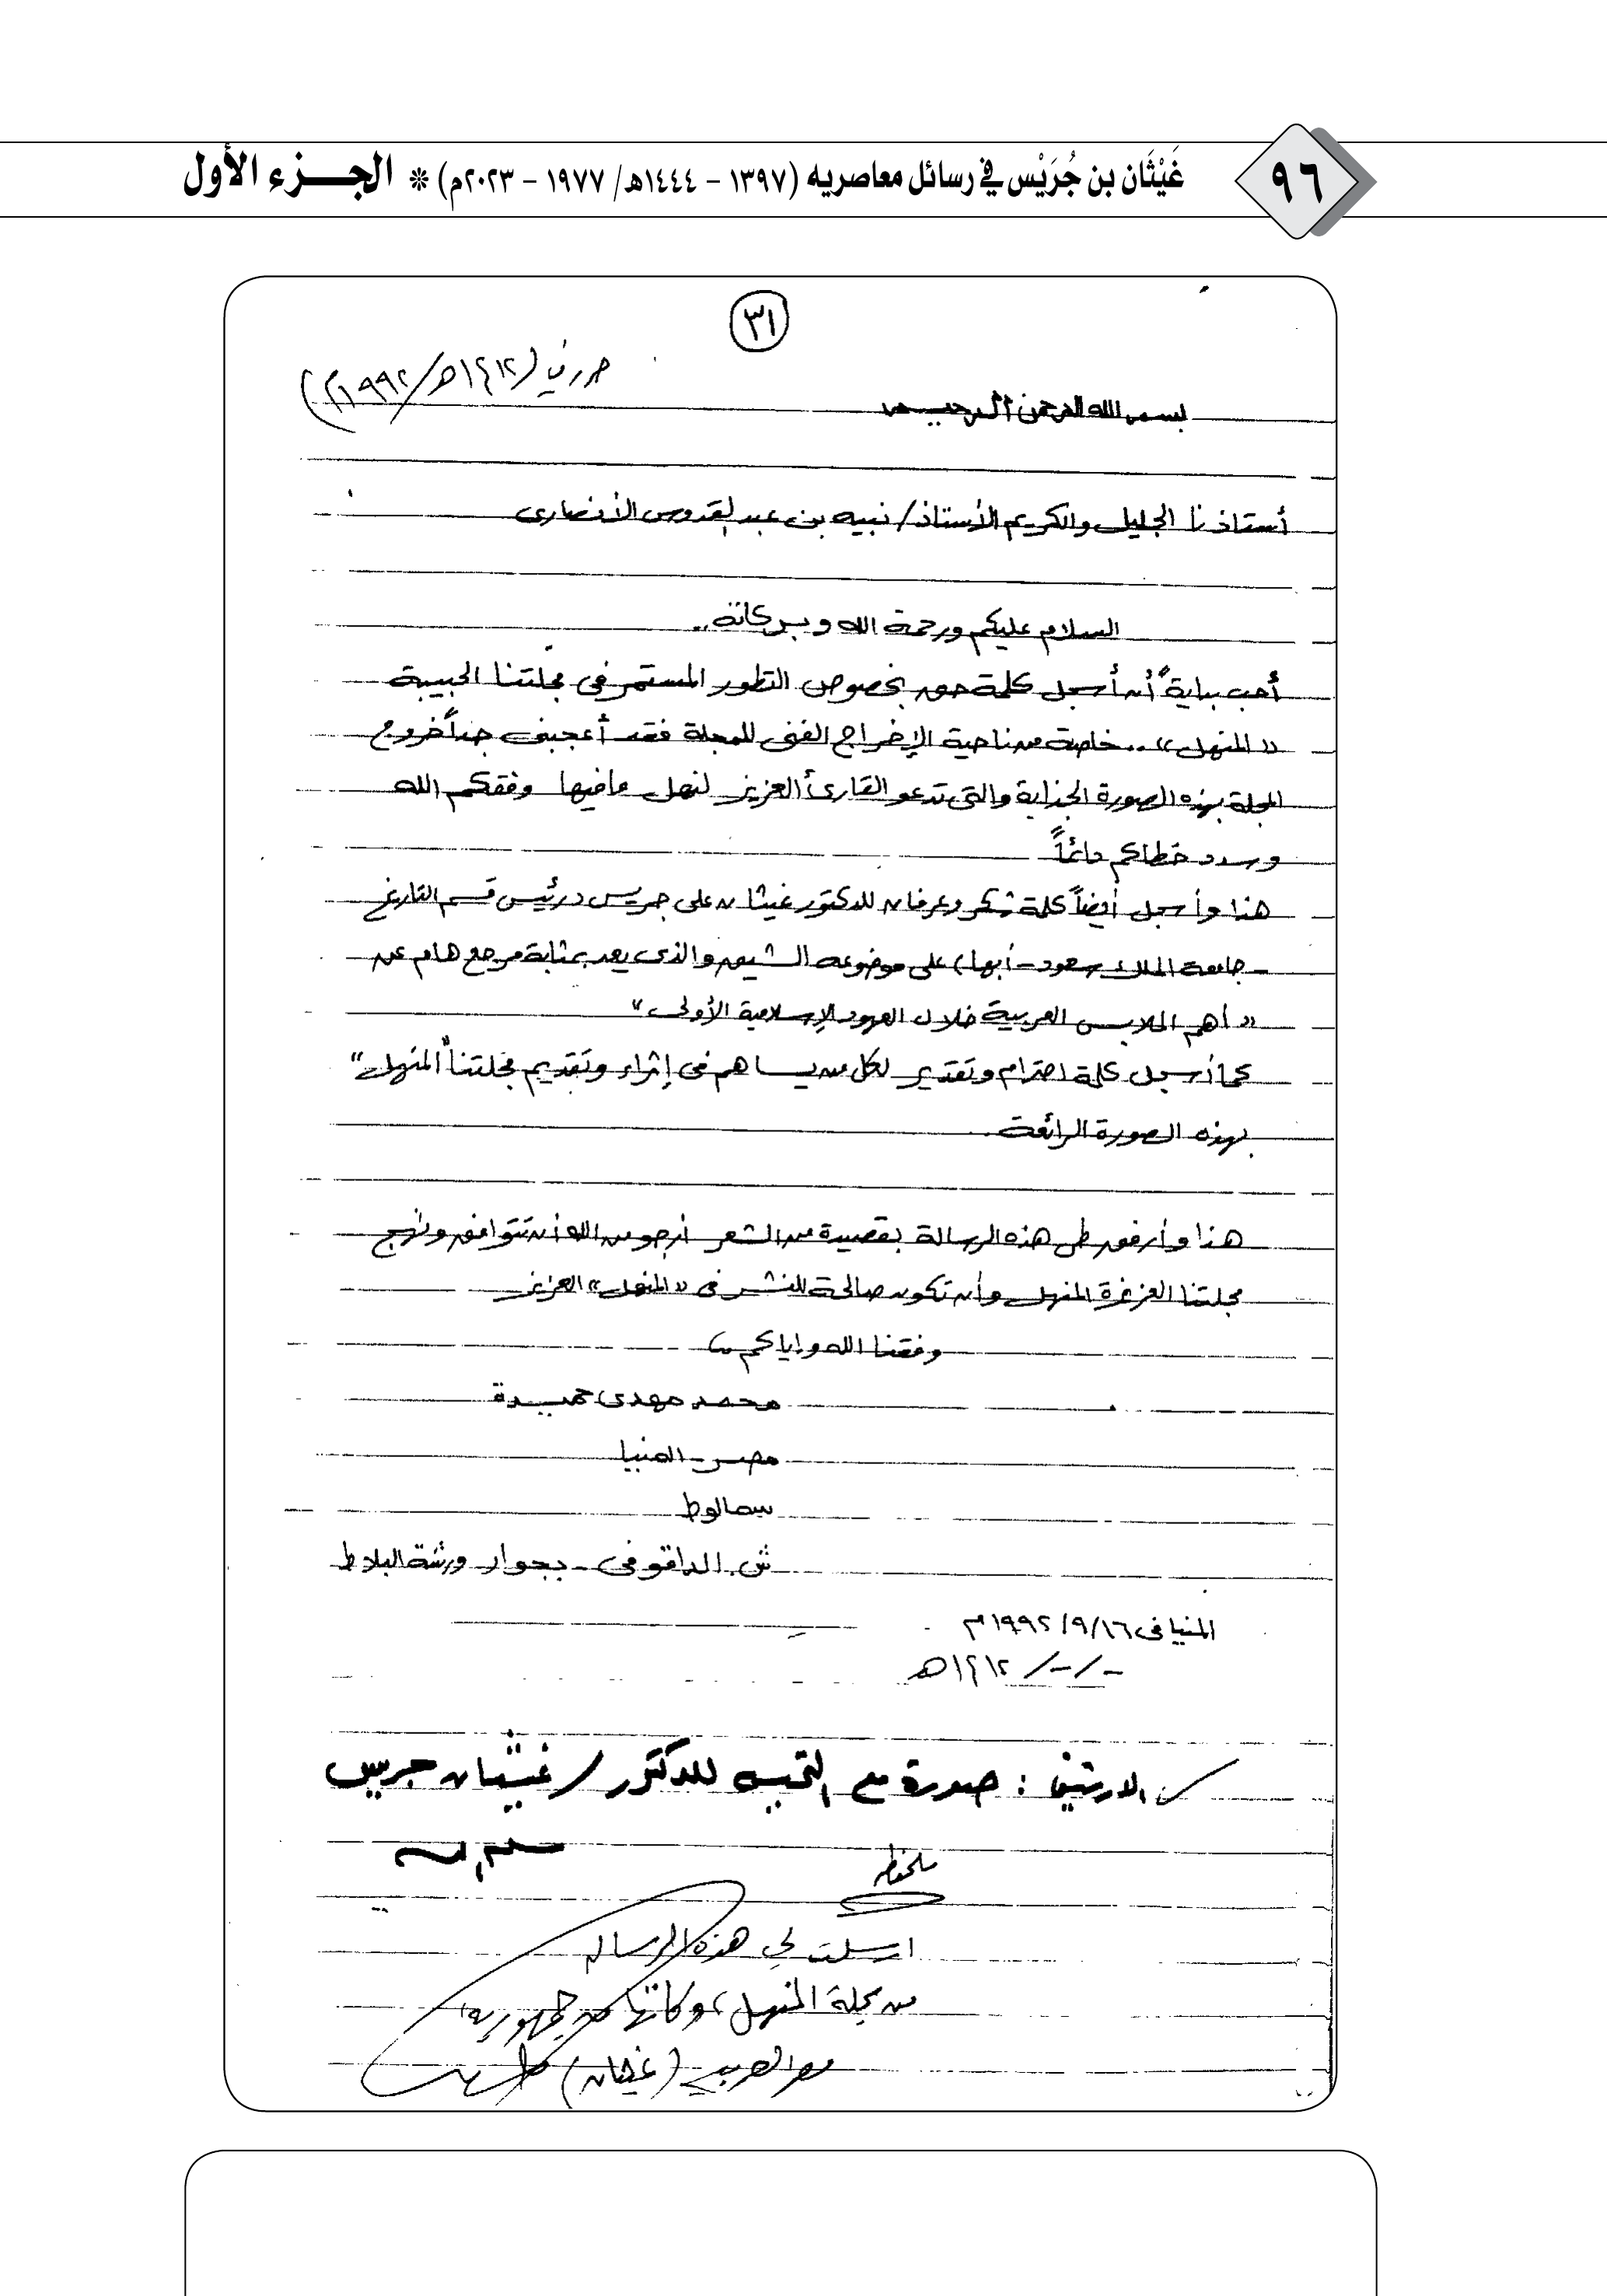 ٩٦
غَيْثَان بن جُرَيْس في رسائل معاصريه (١٣٩٧ - ١٤٤٤هـ/ ١٩٧٧ - ٢٠٢٣م) * الجزء الأول
٣١
حرر في (١٤١٢هـ/١٩٩٢م)
بسم الله الرحمن الرحيم
أستاذنا الجليل والكريم الأستاذ/ نبيه بن عبد القدوس الأنصارى
السلام عليكم ورحمة الله وبركاته..
أحب بداية أن أسجل كلمة حق بخصوص التطور المستمر فى مجلتنا الحبيبة
«المنهل».. خاصة من ناحية الإخراج الفنى للمجلة فقد أعجبنى جداً خروج
المجلة بهذه الصورة الجذابة والتى تدعو القارئ العزيز لنهل مافيها وفقكم الله
وسدد خطاكم دائماً
هذا وأسجل أيضاً كلمة شكر وعرفان للدكتور غيثان على جريس (رئيس قسم التاريخ
- جامعة الملك سعود - أبها) على موضوعه الشيق والذى يعد بمثابة مرجع هام عن
«أهم الملابس العربية خلال العهود الإسلامية الأولى»
كما أسجل كلمة احترام وتقدير لكل من يساهم فى إثراء وتقديم مجلتنا "المنهل"
بهذه الصورة الرائعة.
هذا وأرفق طى هذه الرسالة بقصيدة من الشعر أرجو من الله أن تتوافق ونهج
مجلتنا العزيزة المنهل وأن تكون صالحة للنشر فى «المنهل» العزيز
وفقنا الله وإياكم
محمد مهدى حميدة
مصر - المنيا
سمالوط
ش. الداقوفى - بجوار ورشة البلاط
المنيا فى ١٩٩٢/٩/١٦م
-/-/ ١٤١٢هـ
صورة مع التحية للدكتور/ غيثان جريس
ملحوظه
ارسلت لي هذه الرساله
من مجلة المنهل، وكاتبها من جمهورية
مصر العربية (غيثان)